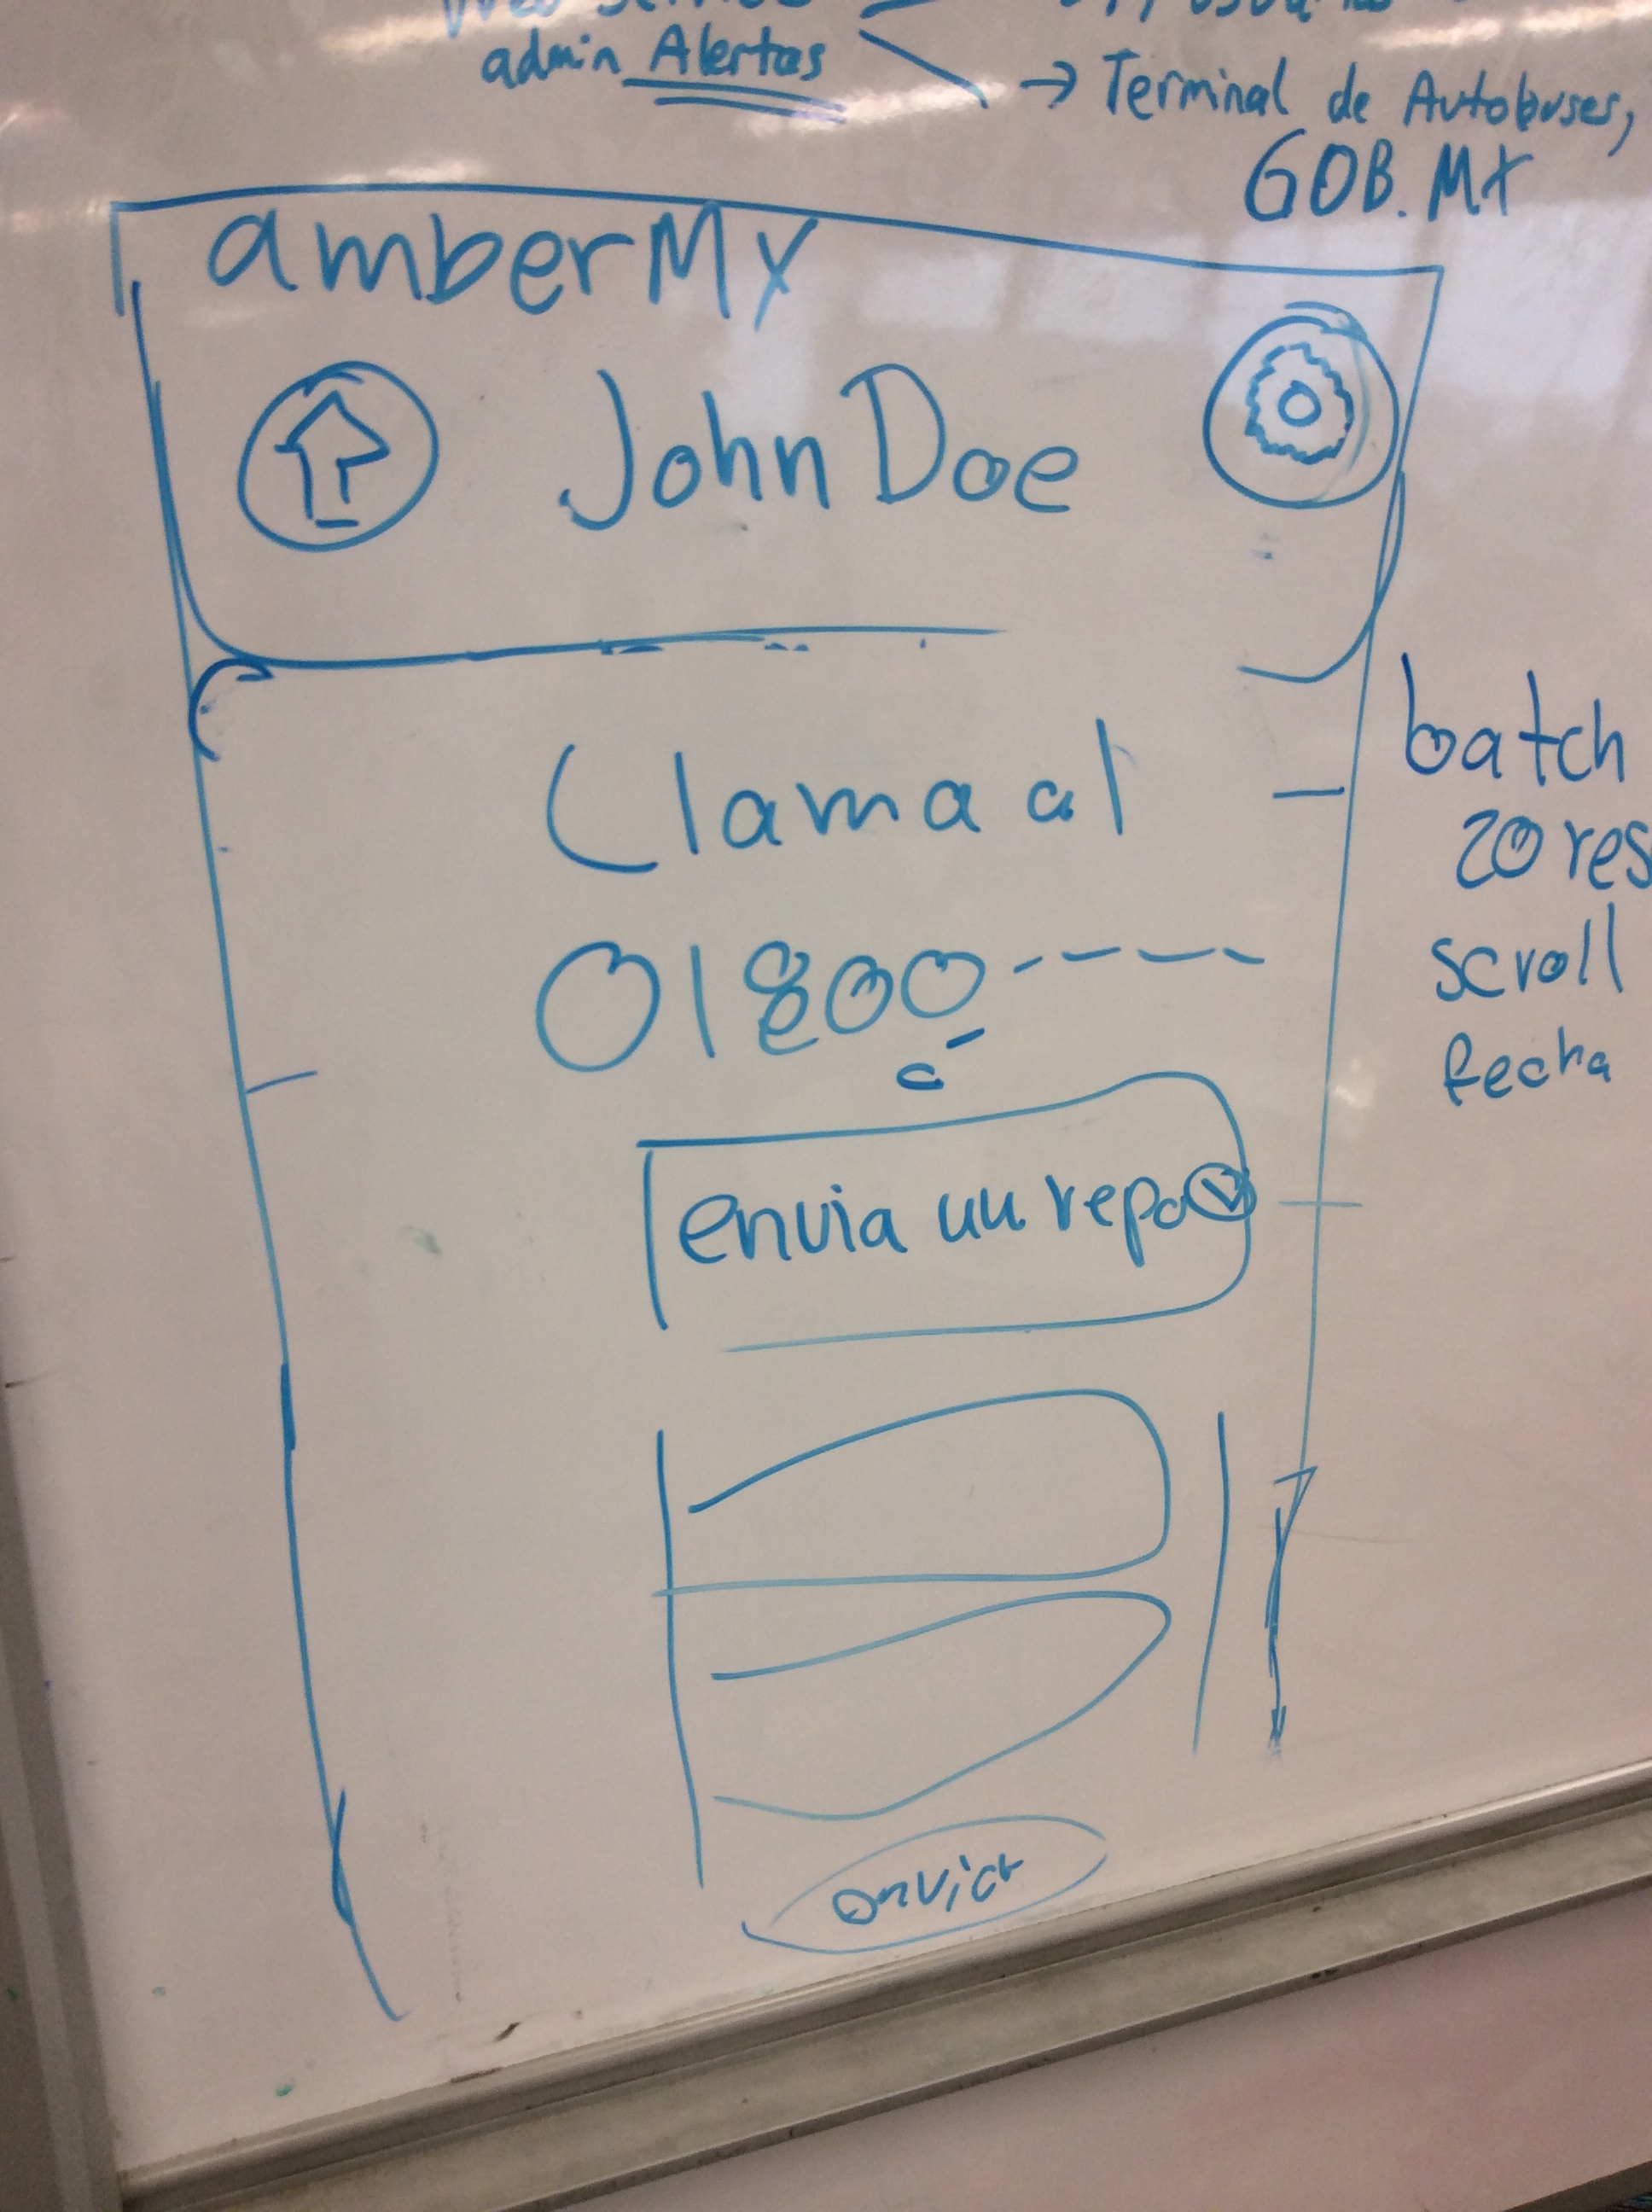 admin Alertas
→ Terminal de Autobuses,
GOB.MX
amberMX
John Doe
Llama al
01800----
envia un repo
enviar
batch
20 res
scroll
fecha